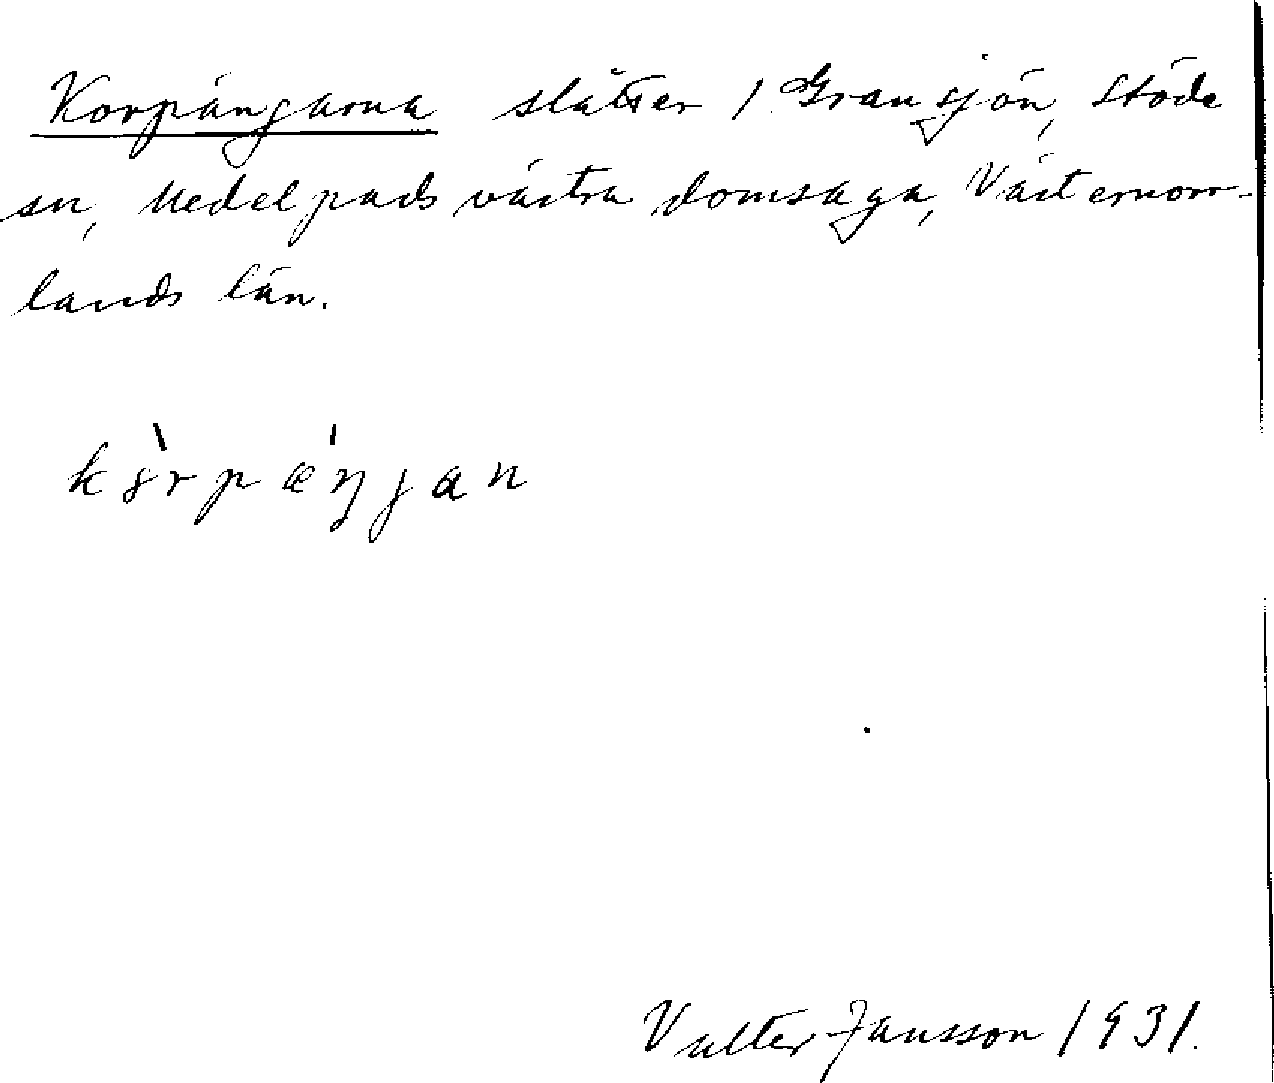 Korpängarna slåtter / Gransjön, Stöde
sn, Medelpads västra domsaga, Västernorr-
lands län.
kòrpæ´ŋjan
Valter Jansson 1931.